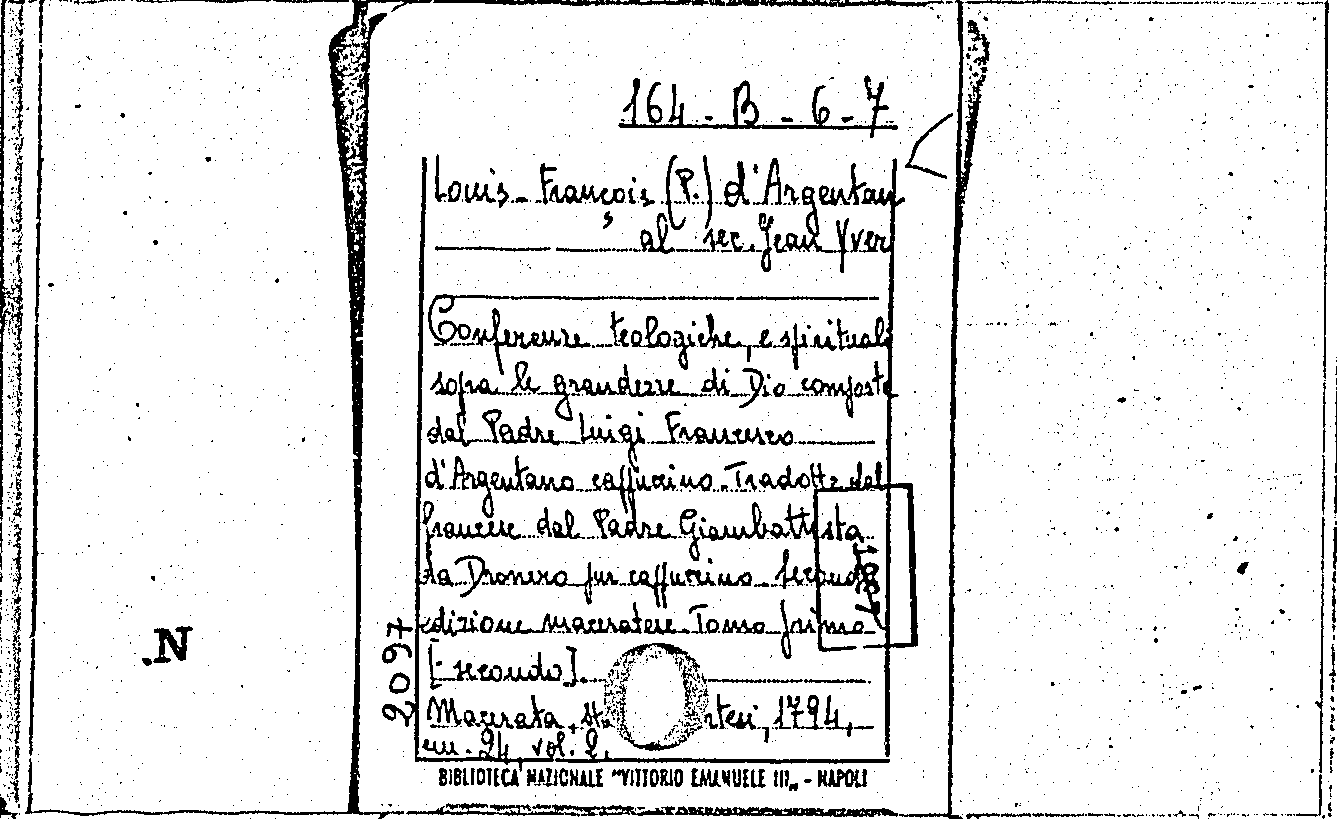 164 - B - 6 - 7
Louis-François (P.) d'Argentan
al sec. Jean Yver
Conferenze teologiche, e spirituali
sopra le grandezze di Dio composte
dal Padre Luigi Francesco
d'Argentano cappuccino. Tradotte dal
francese dal Padre Giambattista
da Dronero pur cappuccino. Seconda
edizione maceratese. Tomo primo
[- secondo].
Macerata, st. rtesi, 1794,
in. 24, vol. 2.
2097
1887
.N
BIBLIOTECA NAZIONALE "VITTORIO EMANUELE III" - NAPOLI